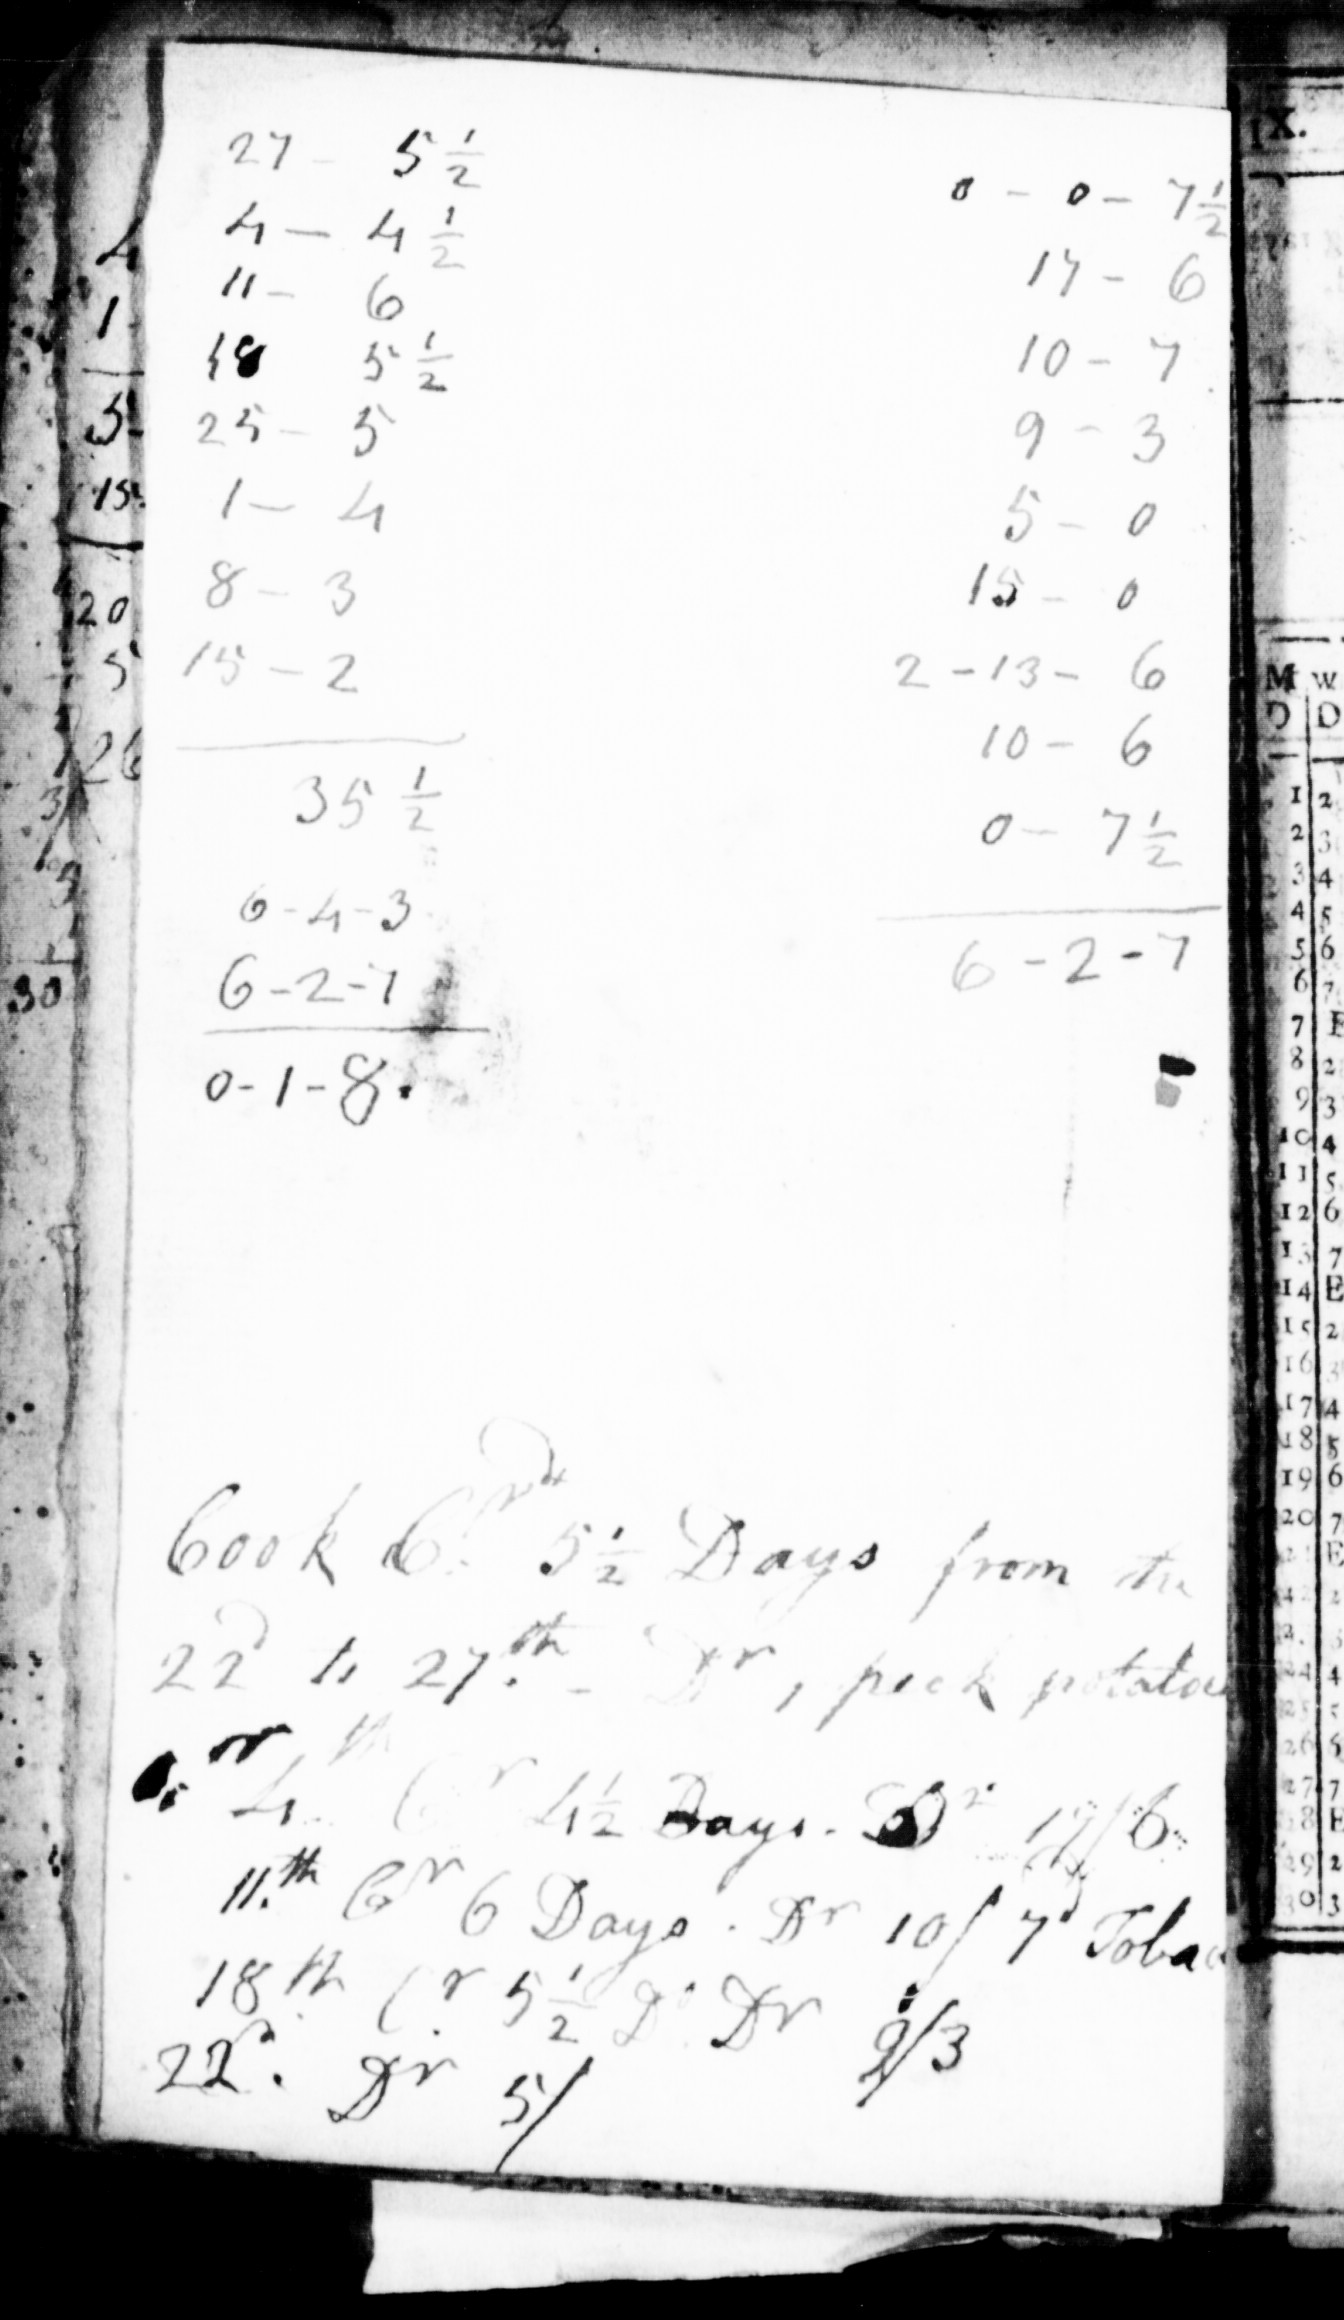 27 - 5 1/2
4 - 4 1/2
11 - 6
18 5 1/2
25 - 5
1 - 4
8 - 3
15 - 2
35 1/2
6-4-3
6-2-7
0-1-8.
0 - 0 - 7 1/2
17 - 6
10 - 7
9 - 3
5 - 0
15 - 0
2 - 13 - 6
10 - 6
0 - 7 1/2
6 - 2 - 7
Cook Cr. 5 1/2 Days from the
22d to 27th - Dr, peck potatoe
4th Cr 4 1/2 Days. Dr 17/6
11th Cr 6 Days. Dr 10/7d Tobac
18th Cr 5 1/2 Do Dr 9/3
22d. Dr 5/
4
1
5
15
20
5
26
30
IX.
M W
D D
1 2
2 3
3 4
4 5
5 6
6 7
7 E
8 2
9 3
10 4
11 5
12 6
13 7
14 E
15 2
16 3
17 4
18 5
19 6
20 7
E
2
24 4
25 5
26 6
27 7
28 E
29 2
30 3